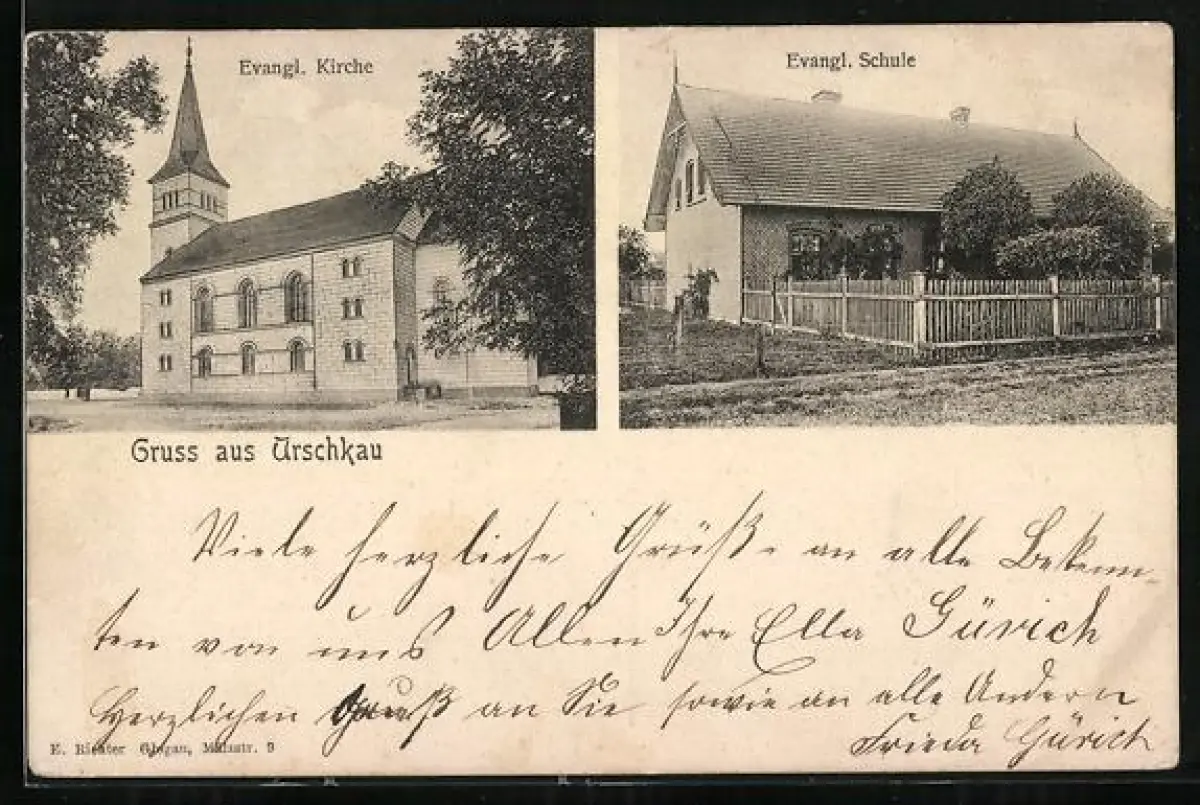 Evangl. Kirche
Evangl. Schule
Gruss aus Urschkau
Viele herzliche Grüße an alle Bekann-
ten von uns Allen Ihre Ella Gürich
Herzlichen Gruß an Sie sowie an alle Andern
Frieda Gürich
E. Richter Glogau, Mälzstr. 9